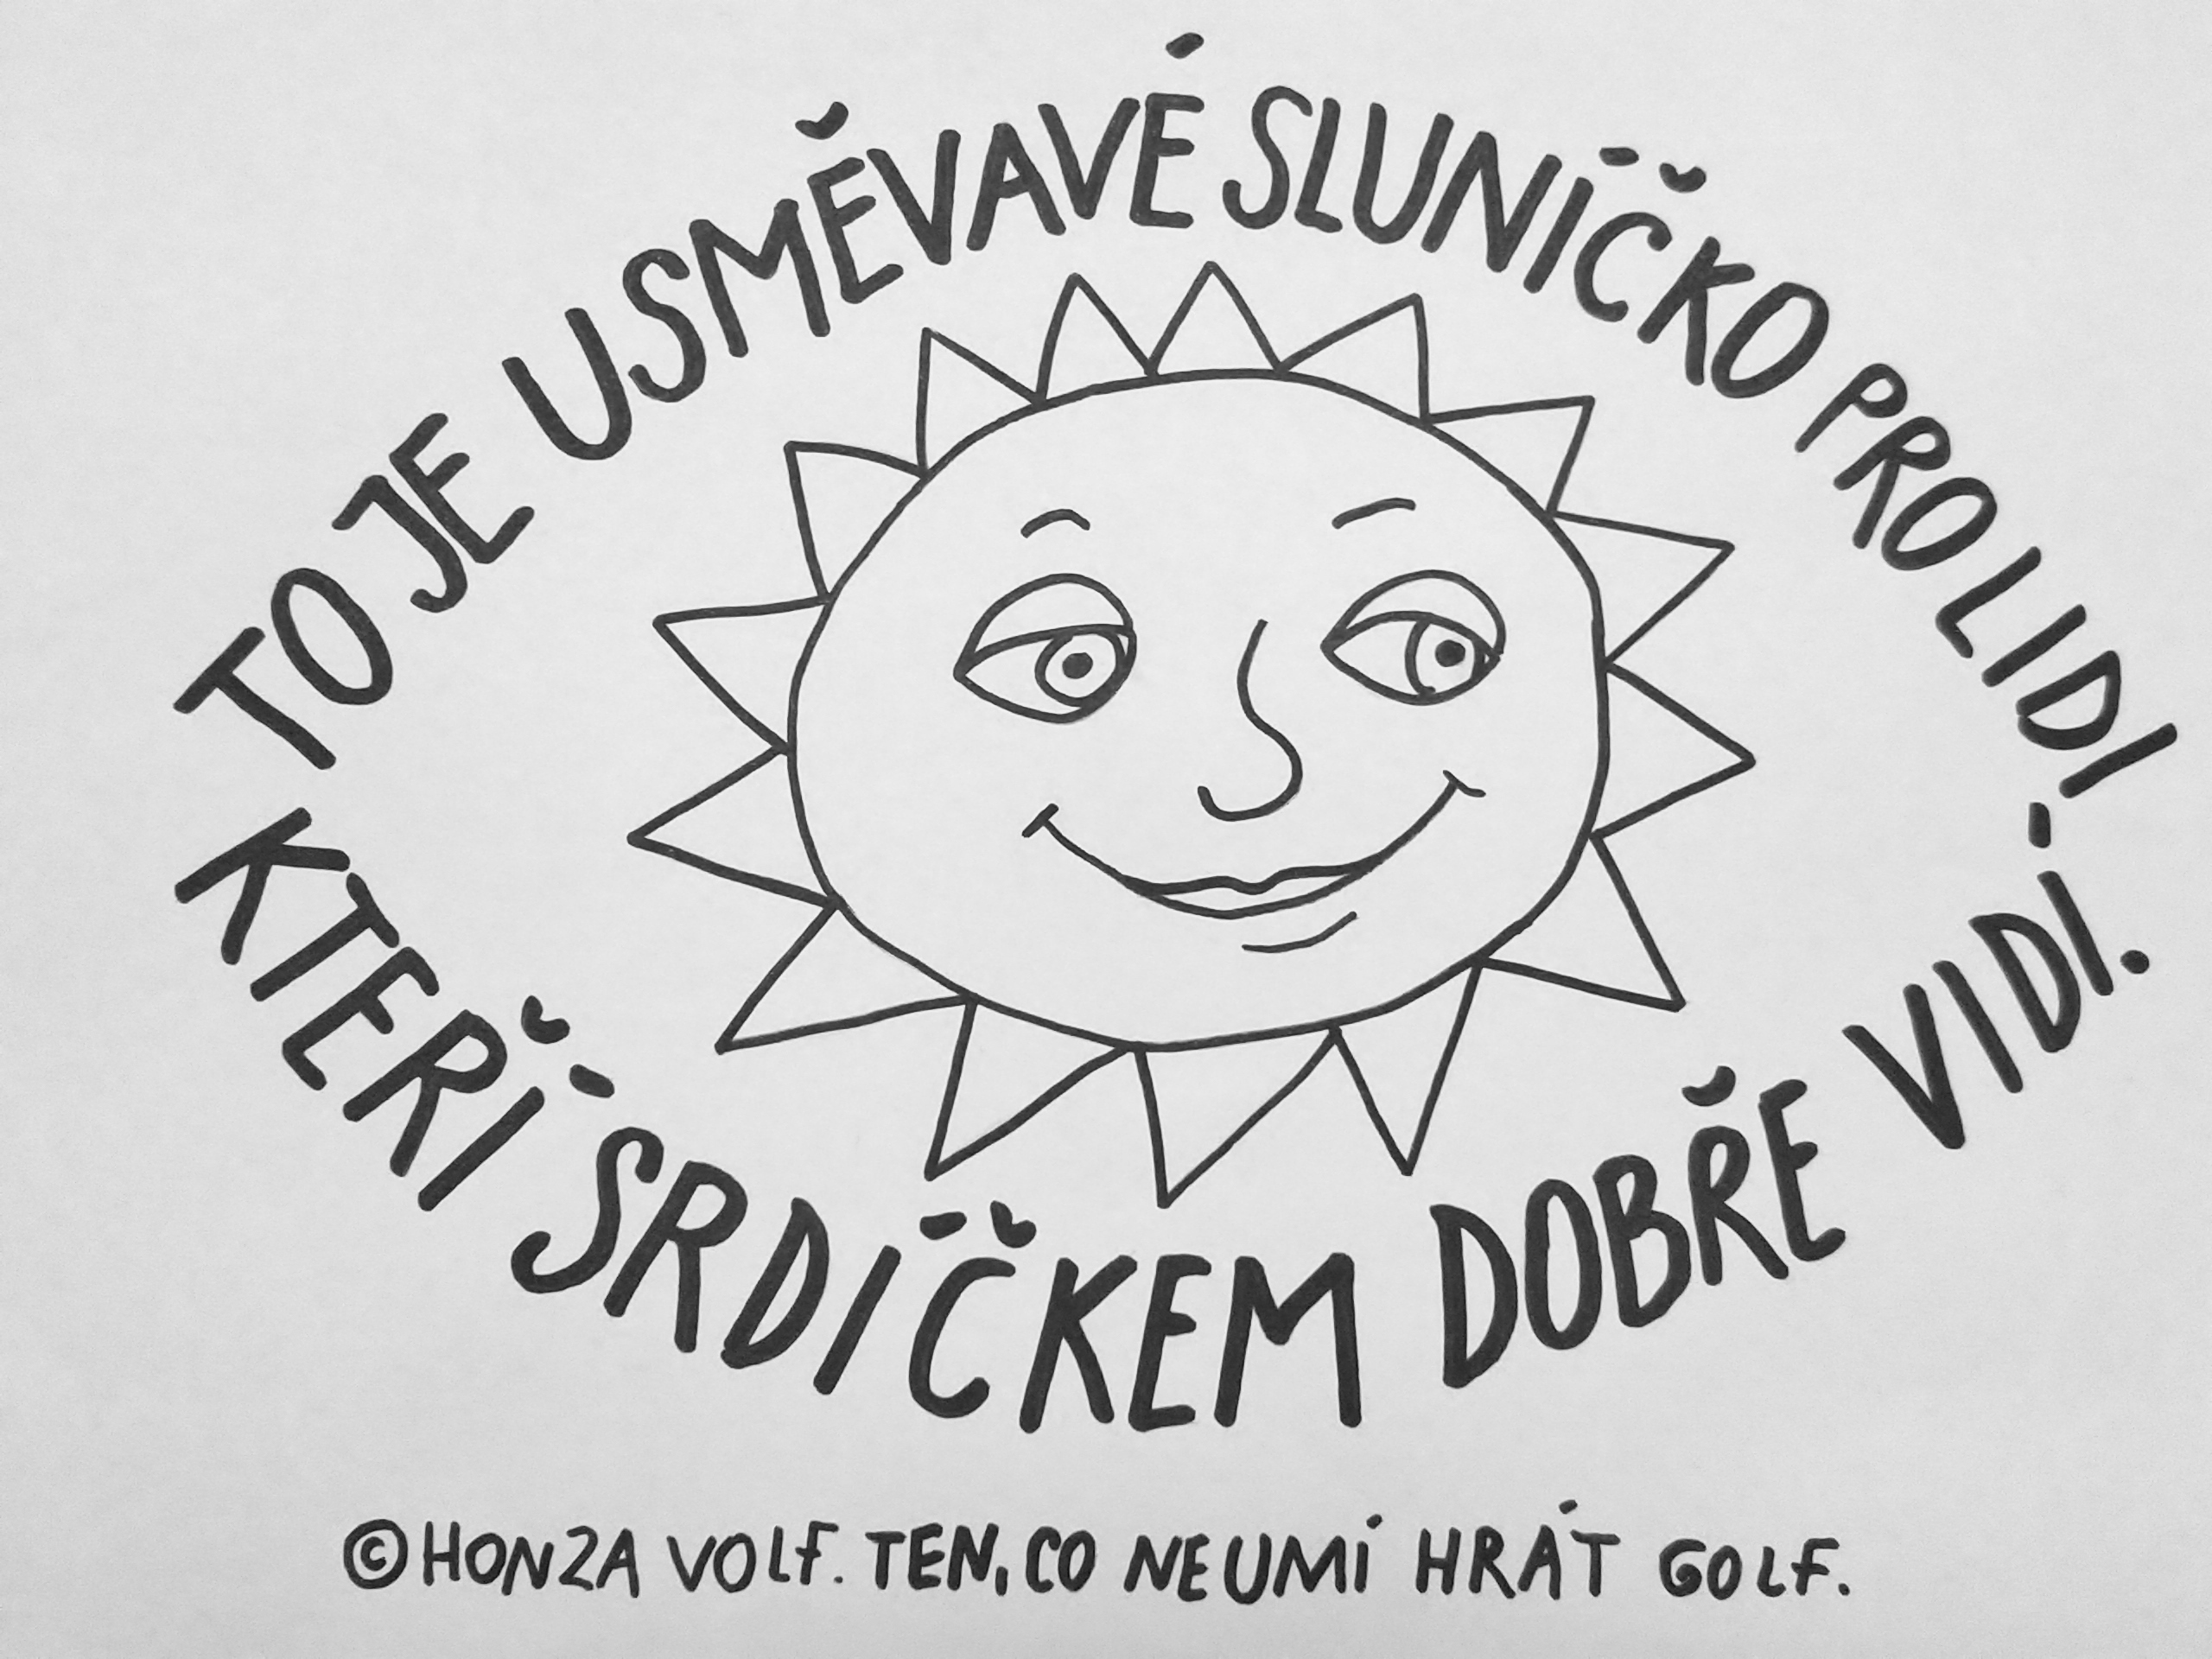 TO JE USMĚVAVÉ SLUNÍČKO PRO LIDI
KTEŘÍ SRDÍČKEM DOBŘE VIDÍ.
©HONZA VOLF. TEN, CO NEUMÍ HRÁT GOLF.